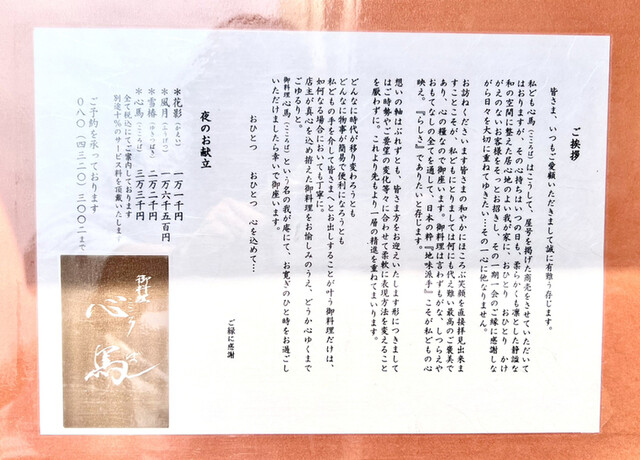 ご挨拶
皆さま、いつもご愛顧いただきまして誠に有難う存じます。
私ども心馬（こころば）はこうして、屋号を掲げた商売をさせていただいて
はおりますが、その心持ちはいつの日も、柔らかくも凛とした静謐な
和の空間に整えた居心地のよい我が家に、おひとり おひとり かけ
がえのないお客様をそっとお招きし、その一期一会のご縁に感謝しな
がら日々を大切に重ねてゆきたい…その一心に他なりません。
お訪ねくださいます皆さまの和やかにほころぶ笑顔を直接拝見出来ま
すことこそが、私どもにとりましては何にも代え難い最高のご褒美で
あり、心の糧なので御座います。御料理は言わずもがな、しつらえや
おもてなしの全てを通して、日本の粋『地味派手』こそが私どもの心
映え。『らしさ』でありたいと存じます。
想いの軸はぶれずとも、皆さま方をお迎えいたします形につきまして
はご時勢やご要望の変化等々に合わせて柔軟に表現方法を変えること
を厭わずに、これより先もより一層の精進を重ねてまいります。
どんなに時代が移り変わろうとも
どんなに物事が簡易で便利になろうとも
私どもの手を介して皆さまへとお出しすることが叶う御料理だけは、
如何なる場合においても丁寧に。
店主が真心を込め拵えた御料理をお愉しみのうえ、どうか心ゆくまで
ごゆるりと。
御料理 心馬（こころば）という名の我が庵にて、お寛ぎのひと時をお過ごし
いただけましたら幸いで御座います。
おひとつ おひとつ 心を込めて…
ご縁に感謝
夜のお献立
＊花影（かえい） 一万一千円
＊風月（ふうげつ） 一万六千五百円
＊雪椿（ゆきつばき） 二万二千円
＊心馬（こころば） 三万三千円
全て税込にてご案内しております
別途十％のサービス料を頂戴いたします
ご予約を承っております
〇八〇-四三二〇-三〇〇二まで
御料理
心馬
こころば